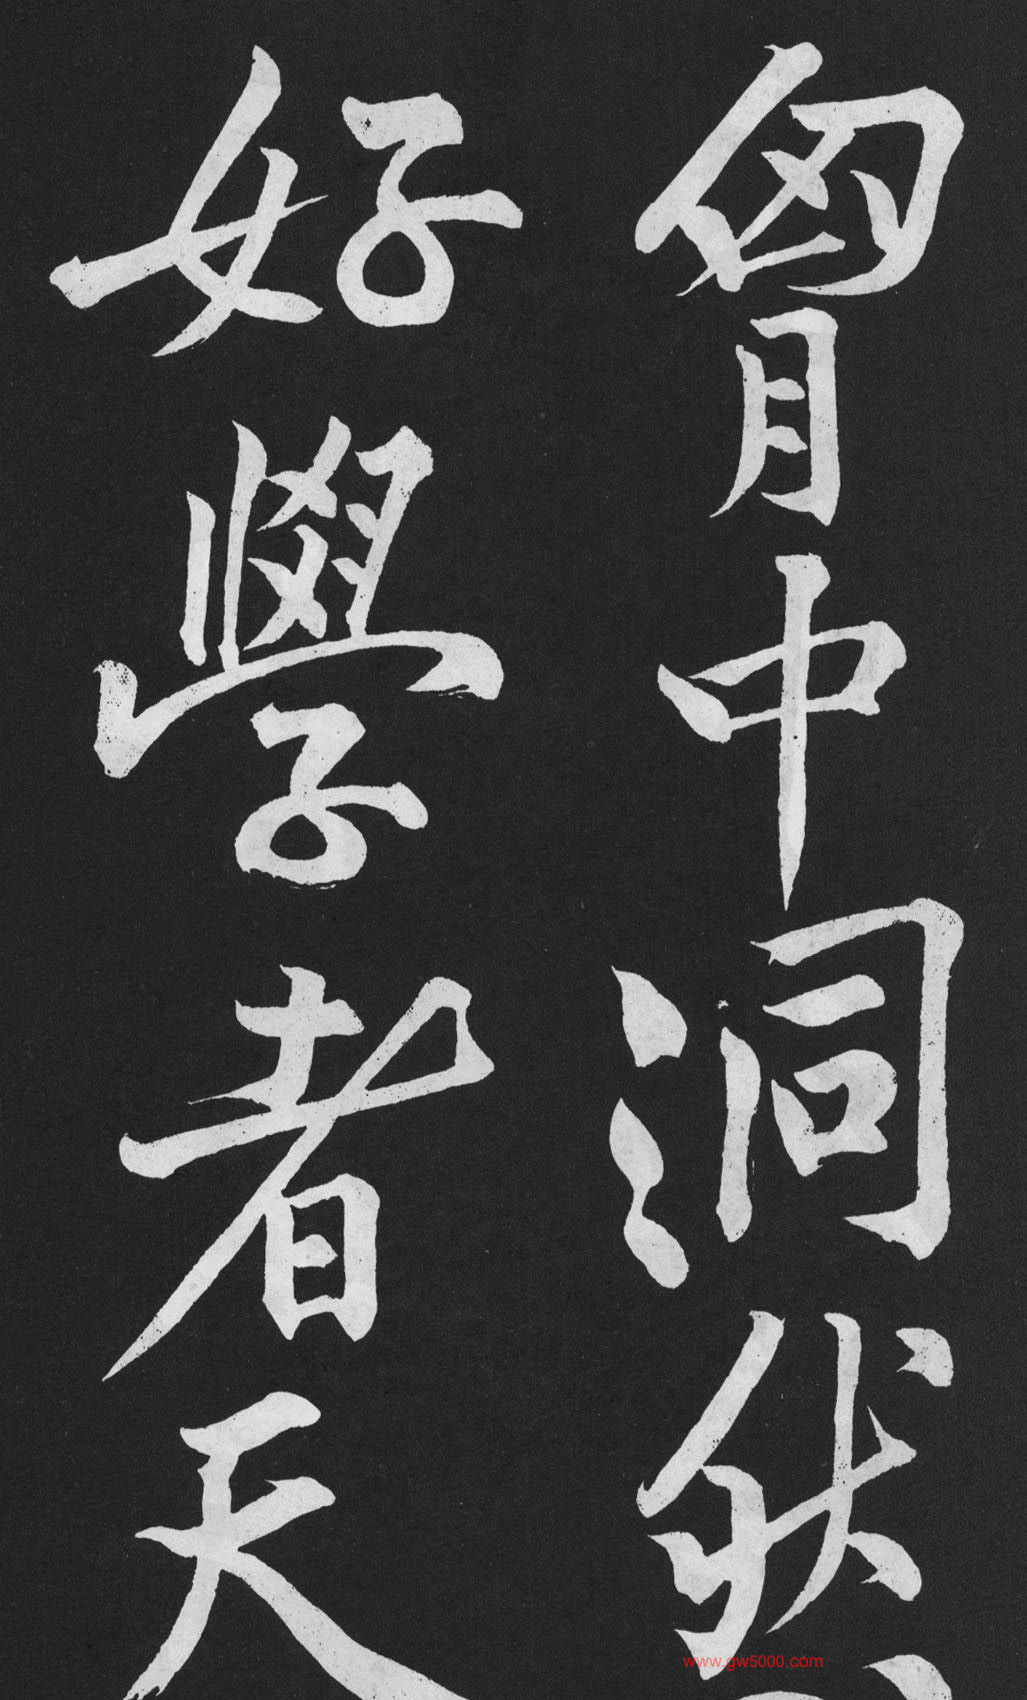 胷中洞然
好學者天
www.gw5000.com